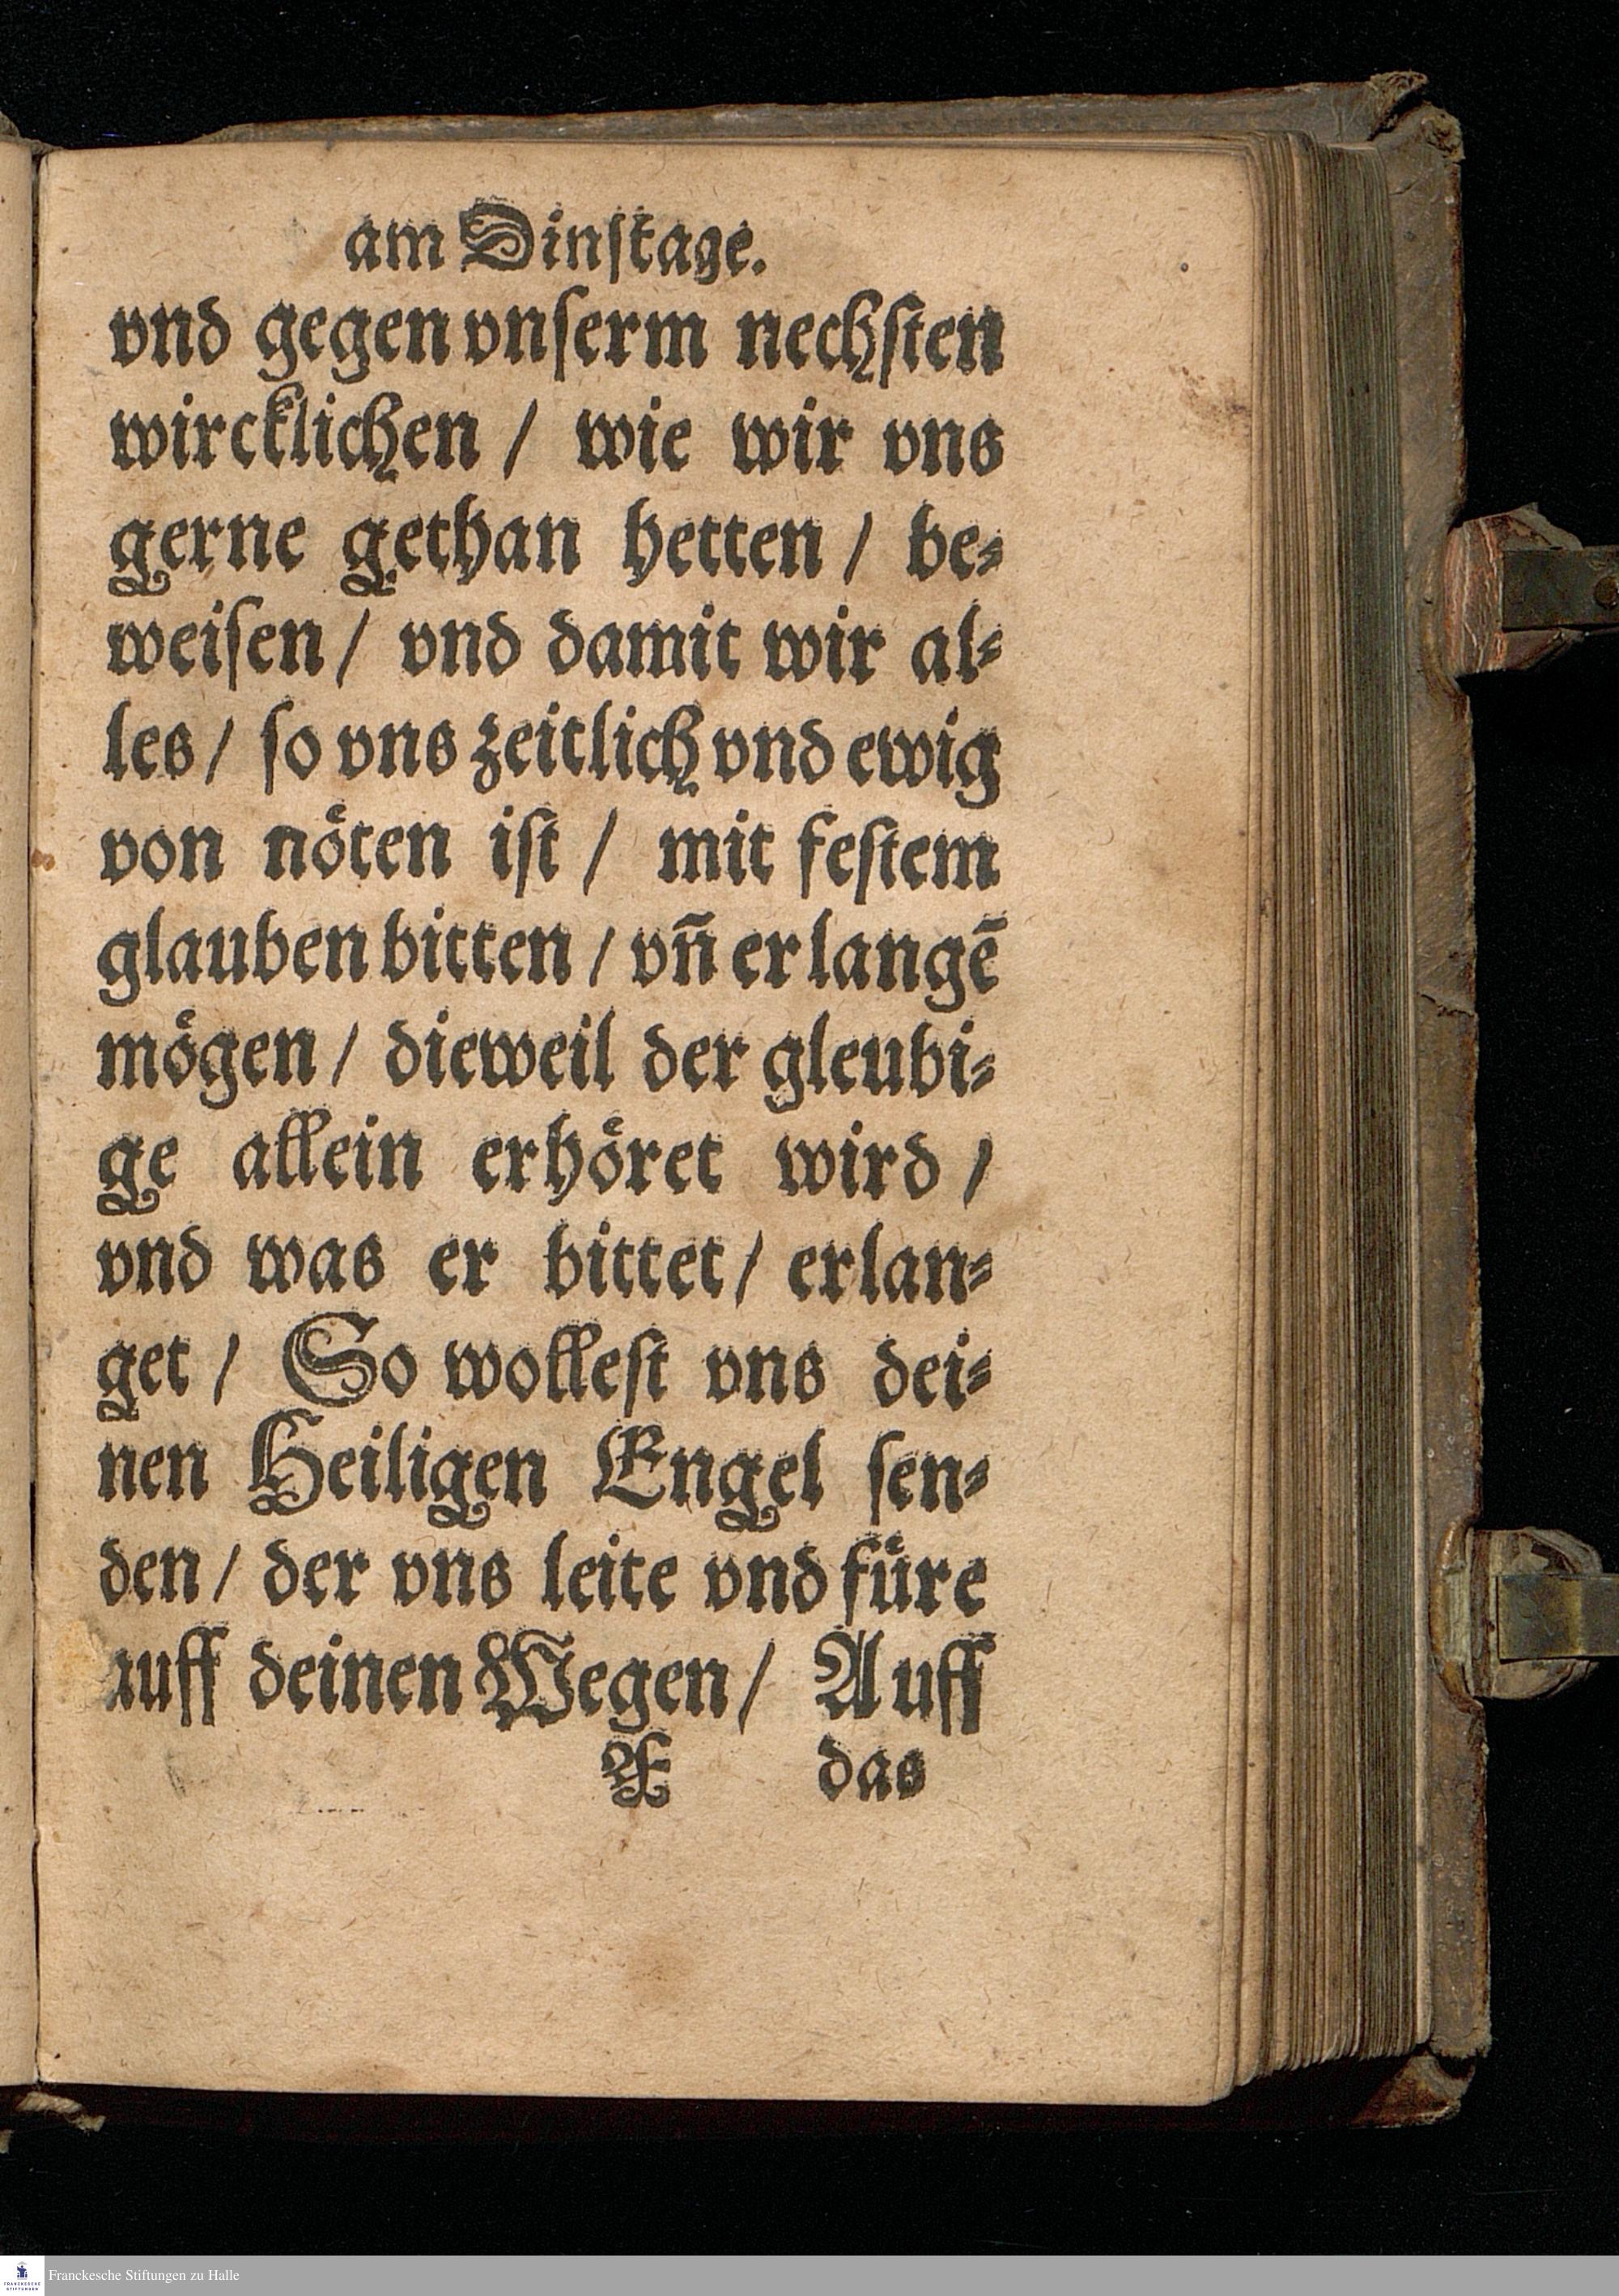 am Dinſtage.
vnd gegen vnſerm nechſten
wircklichen / wie wir vns
gerne gethan hetten / be⸗
weiſen / vnd damit wir al⸗
les / ſo vns zeitlich vnd ewig
von nöten iſt / mit feſtem
glauben bitten / vn̄ erlangē
mögen / dieweil der gleubi⸗
ge allein erhöret wird /
vnd was er bittet / erlan⸗
get / So wolleſt vns dei⸗
nen Heiligen Engel ſen⸗
den / der vns leite vnd füre
auff deinen Wegen / Auff
das
FRANCKESCHE STIFTUNGEN
Franckesche Stiftungen zu Halle